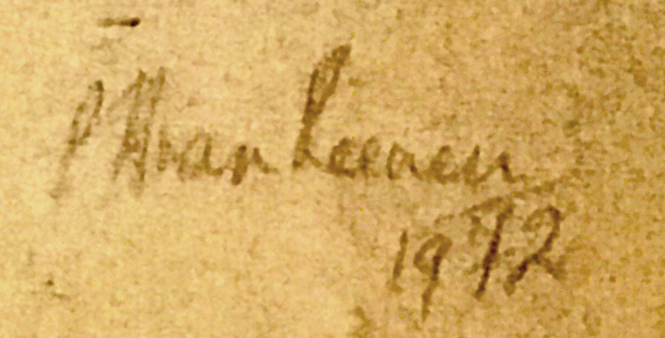 P H van Leenen
1942